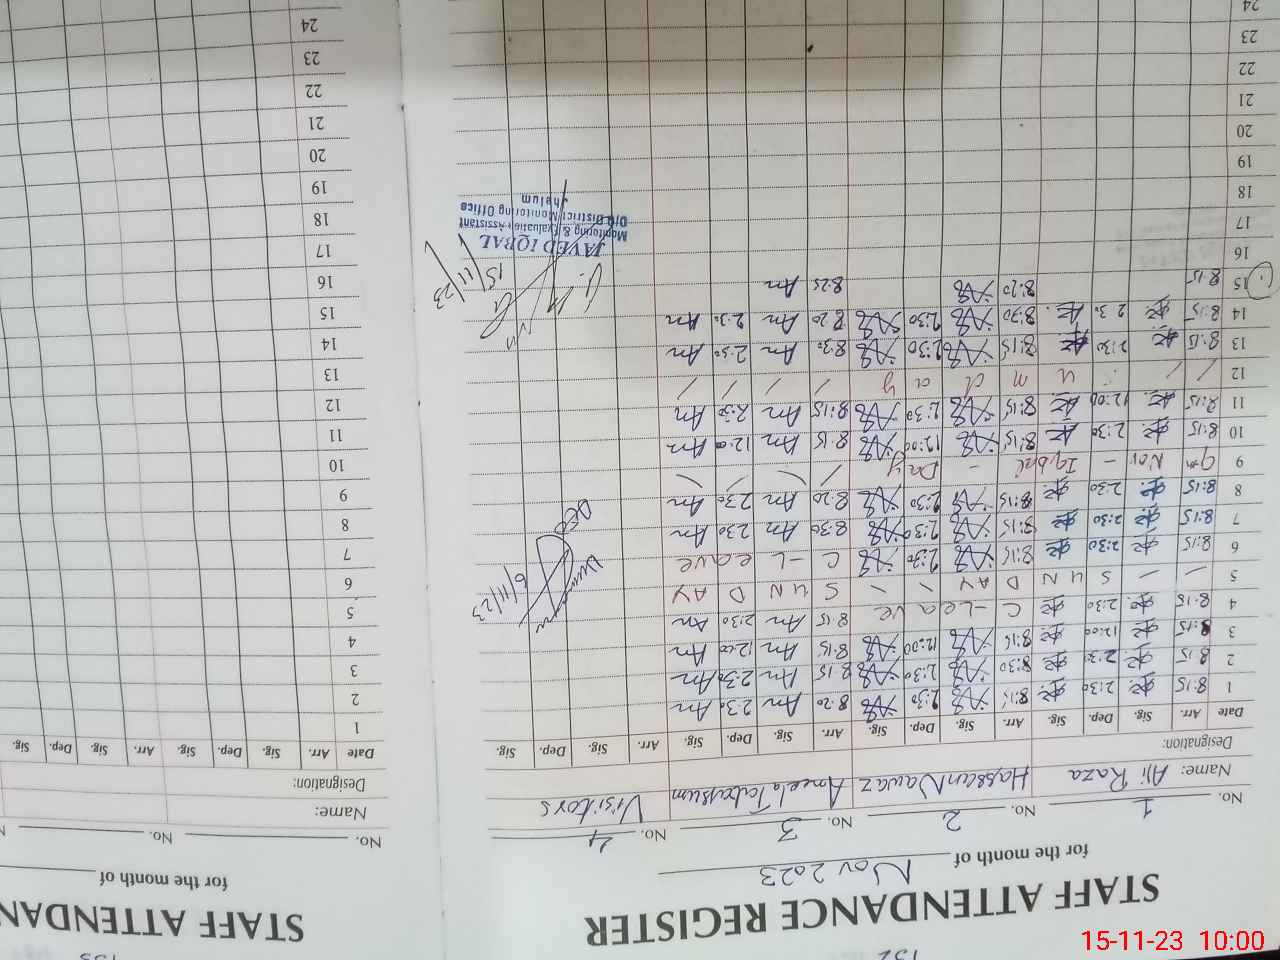 132
STAFF ATTENDANCE REGISTER
for the month of Nov 2023
No. 1 No. 2 No. 3 No. 4
Name: Ali Raza Hassan Nawaz Aneela Tabassum Visitors
Designation:
Date Arr. Sig. Dep. Sig. Arr. Sig. Dep. Sig. Arr. Sig. Dep. Sig. Arr. Sig. Dep. Sig.
1 8:15 2:30 8:15 2:30 8:20 An 2:30 An
2 8:15 2:30 8:30 2:30 8:15 An 2:30 An
3 8:15 12:00 8:15 12:00 8:15 An 12:00 An
4 8:15 2:30 C - Leave 8:15 An 2:30 An
5 S U N D AY S U N D AY
6 8:15 2:30 8:15 2:30 C - L eave
7 8:15 2:30 8:15 2:30 8:30 An 2:30 An
8 8:15 2:30 8:15 2:30 8:20 An 2:30 An
9 9th Nov - Iqbal - Day
10 8:15 2:30 8:15 12:00 8:15 An 12:00 An
11 8:15 12:00 8:15 2:30 8:15 An 2:30 An
12 u m d a y
13 8:15 2:30 8:15 2:30 8:30 An 2:30 An
14 8:15 2:30 8:20 2:30 8:20 An 2:30 An
15 8:15 8:20 8:25 An
16
17
18
19
20
21
22
23
24
6/11/23
DEO
15/11/23
JAVED IQBAL
Monitoring & Evaluation Assistant
O/o District Monitoring Office
Jhelum
133
STAFF ATTENDAN
for the month of
No. No.
Name:
Designation:
Date Arr. Sig. Dep. Sig. Arr. Sig. Dep. Sig.
1
2
3
4
5
6
7
8
9
10
11
12
13
14
15
16
17
18
19
20
21
22
23
24
15-11-23 10:00